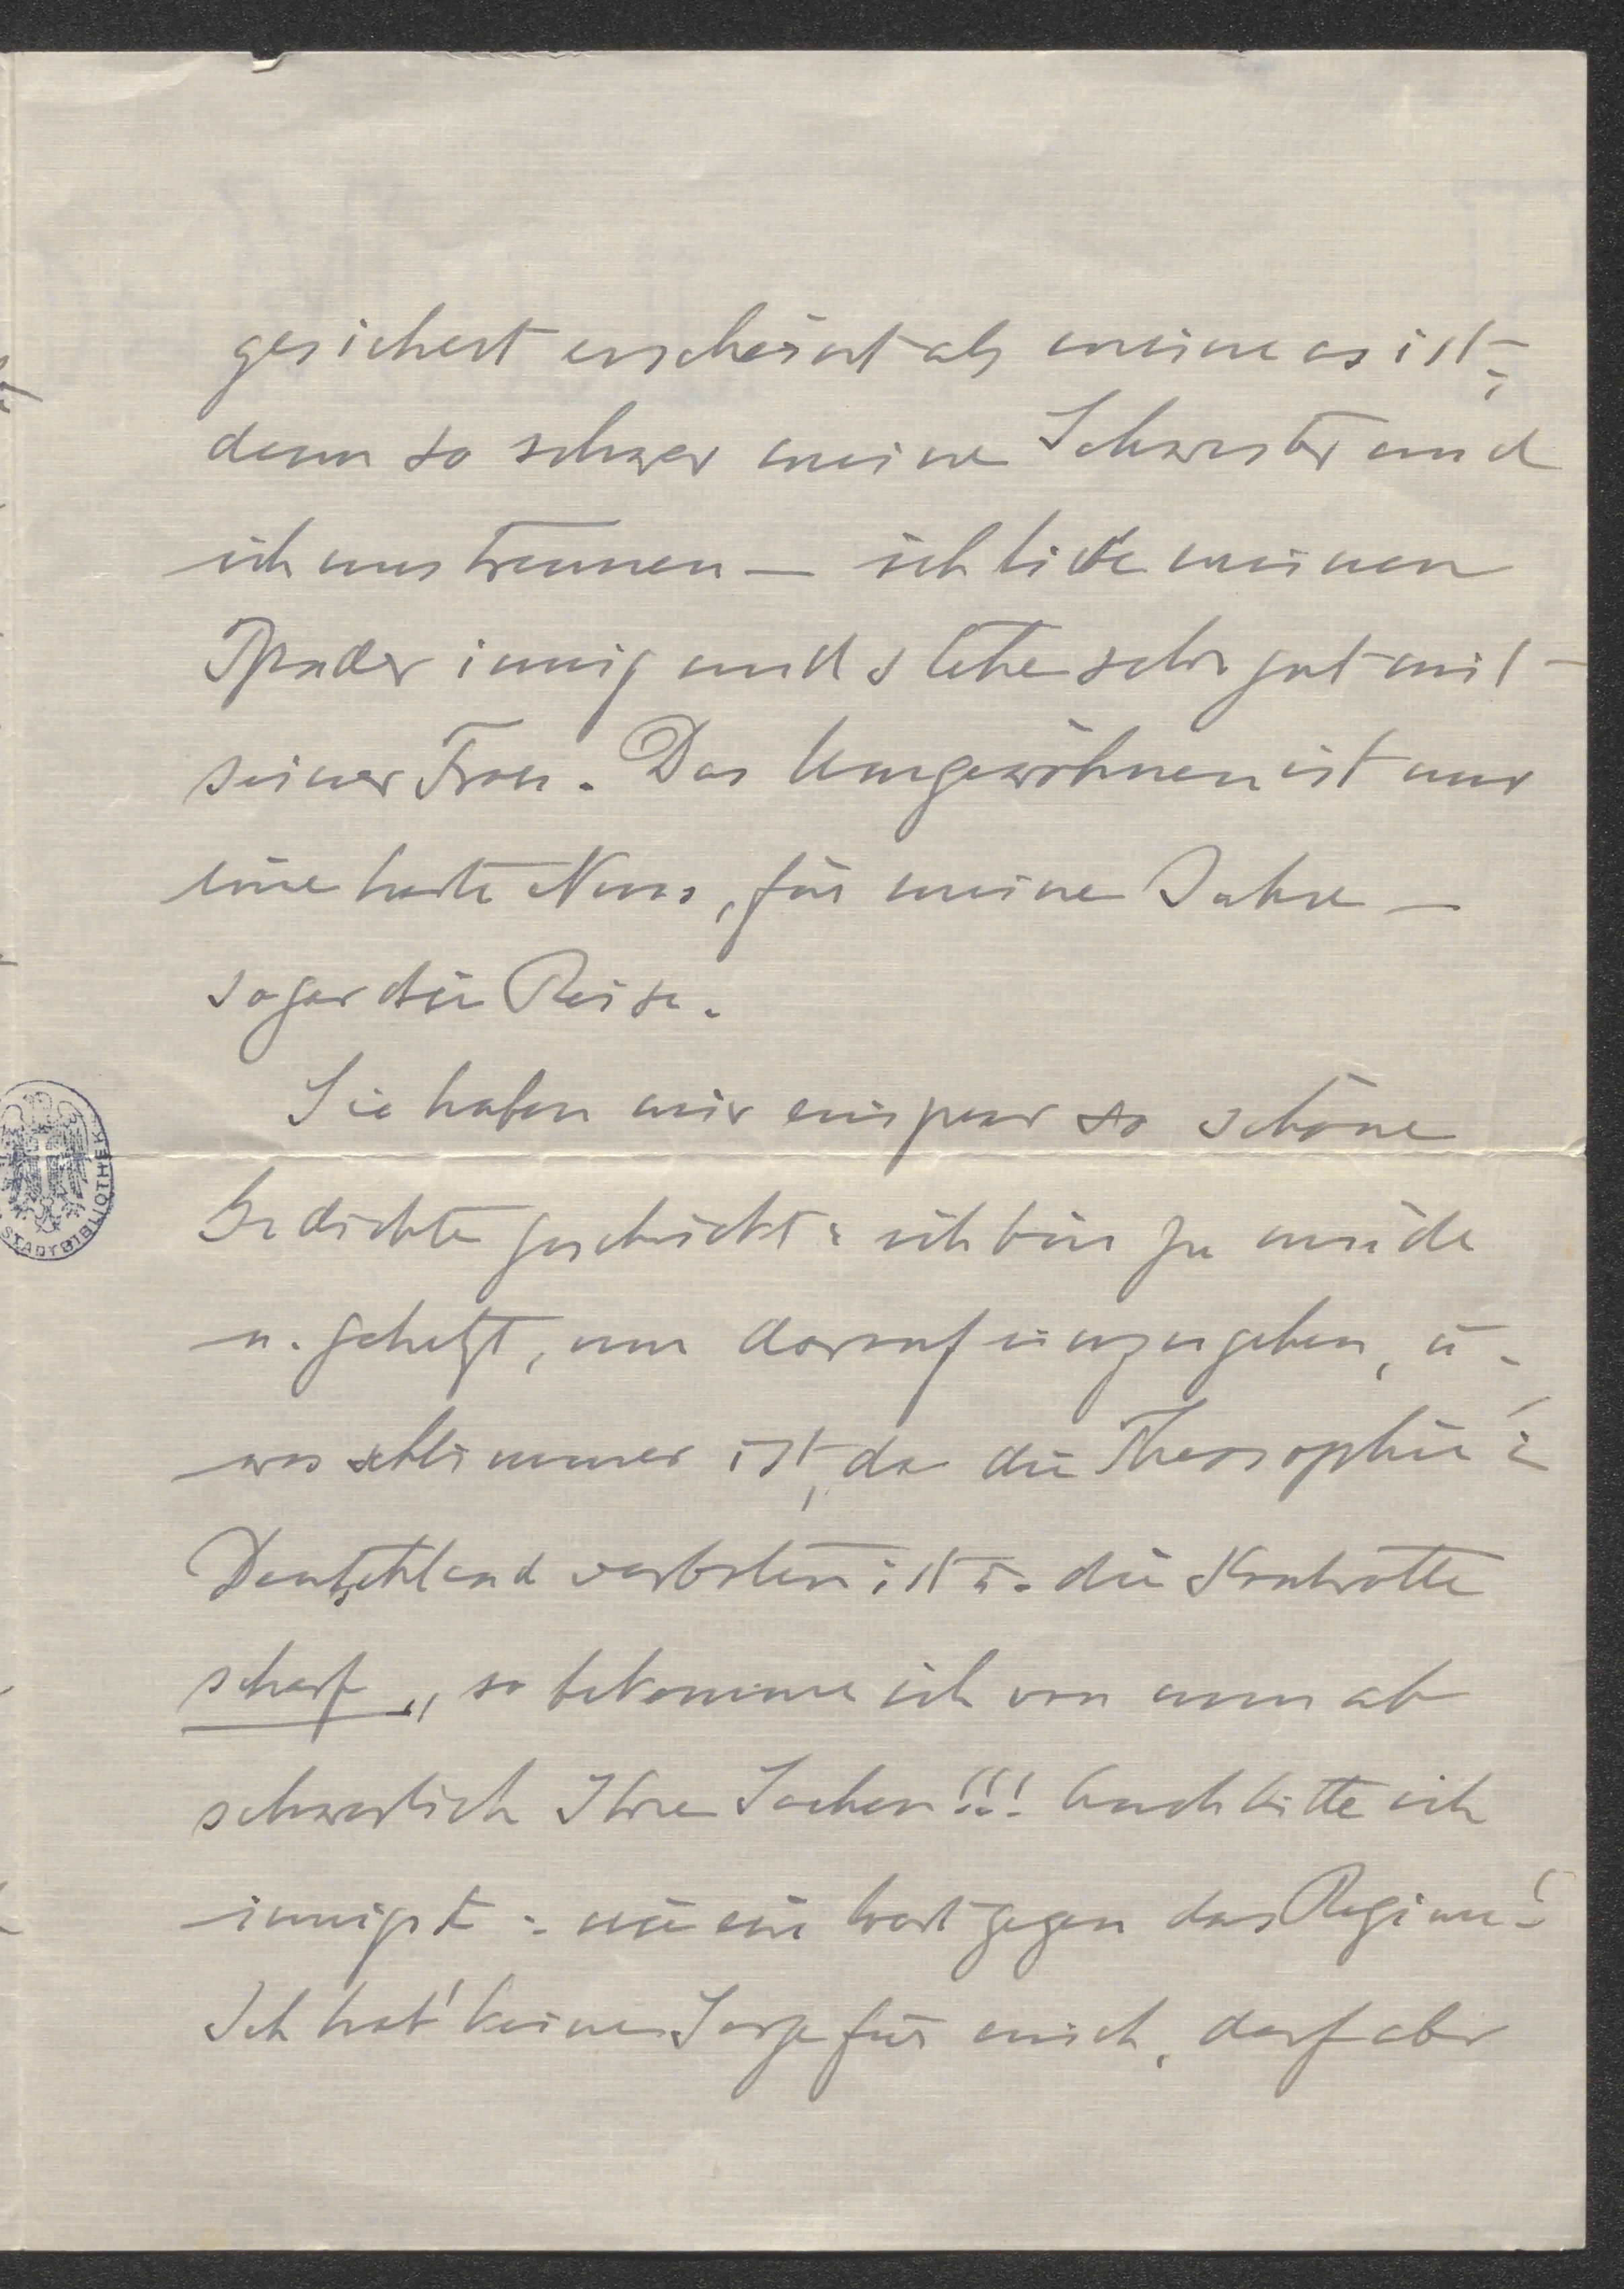 gesichert erscheint als meine es ist;
denn so schwer meine Schwester und
ich uns trennen — ich liebe meinen
Bruder innig und stehe sehr gut mit
seiner Frau. Das Umgewöhnen ist nur
eine harte Nuss, für meine Jahre —
sogar die Reise.
Sie haben mir ein paar so schöne
Gedichte geschickt: ich bin zu müde
u. gehetzt, um darauf einzugehen, u.
was schlimmer ist, da die Theosophie i.
Deutschland verboten ist u. die Kontrolle
scharf, so bekomme ich von nun ab
schwerlich Ihre Sachen!!! Auch bitte ich
innigst: nie ein Wort gegen das Regime!
Ich hab' keine Sorge für mich, darf aber
STADTBIBLIOTHEK